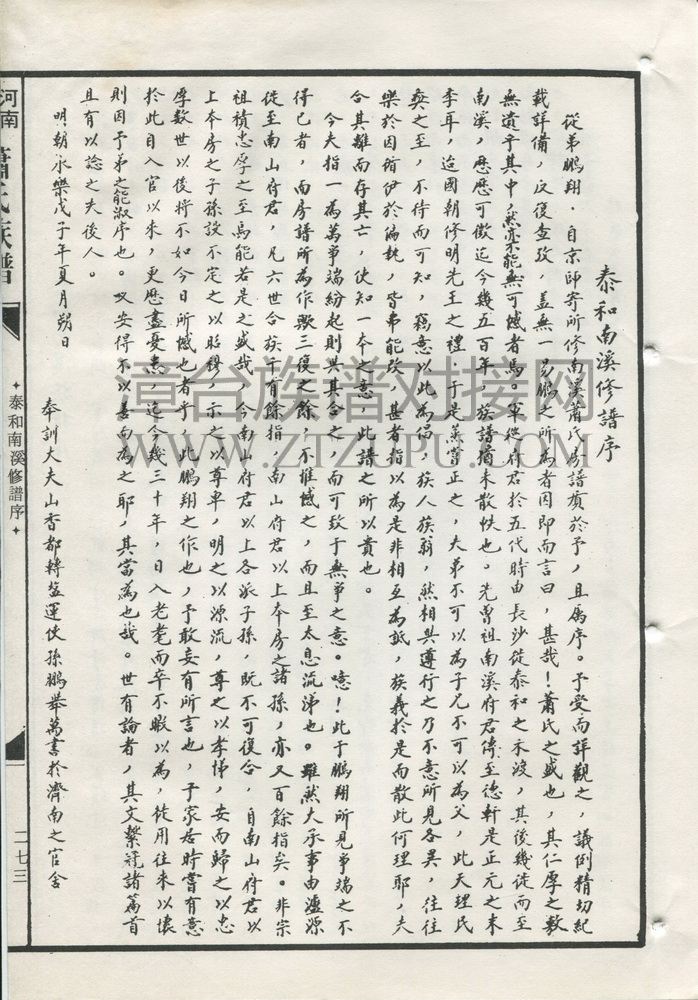 泰和南溪修譜序
從弟鵬翔．自京師寄所修南溪蕭氏房譜質於予，且屬序。予受而詳觀之，議例精切紀
載詳備，反復查攷，蓋無一易鵬之所為者因即而言曰，甚哉！蕭氏之盛也，其仁厚之敷
無遺乎其中，然亦不能無可憾者焉。軍從府君於五代時由長沙徙泰和之禾溪，其後幾徙而至
南溪，歷歷可徵迄今幾五百年，族譜猶未散佚也。先曾祖南溪府君傳至德軒是正元之末
季耳，迨國朝修明先王之禮．于是蒸嘗正之，夫弟不可以為子兄不可以為父，此天理民
彝之至，不待而可知，竊意以此為倡，族人蔟翕，然相與遵行之乃不意所見各異，往往
樂於因循伊於偏執，皆弗能改，甚者指以為是非相互為詆，族義於是而散此何理耶，夫
合其離而存其亡，使知一本之意，此譜之所以貴也。
今夫指一為萬爭端紛起則與其合之，而可致于無爭之意。噫！此于鵬翔所見爭端之不
得已者，而房譜所為作歟三復之餘，不惟憾之，而且至太息流涕也。雖然大承事由瀘源
徙至南山府君，凡六世合族千有餘指，南山府君以上本房之諸孫，亦又百餘指矣。非宗
祖積忠厚之至焉能若是之盛哉，今南山府君以上各派子孫，既不可復合，自南山府君以
上本房之子孫設不定之以昭穆，示之以尊卑，明之以源流，尊之以孝悌，安而歸之以忠
厚數世以後將不如今日所憾也者乎，此鵬翔之作也，予敢妄有所言也，予家居時嘗有意
於此目入官以來，更歷盡憂患，迄今幾三十年，日入老耄而卒不暇以為，徒用往來以懷
則因予弟之能淑序也。又安得不以喜而為之耶，其當為也哉。世有論者，其文繫冠諸篇首
且有以諗之夫後人。
明朝永樂戊子年夏月朔日
奉訓大夫山香都轉益運使孫鵬舉萬書於濟南之官舍
河南
蕭氏族譜
泰和南溪修譜序
二七三
漳台族譜对接网
WWW.ZTZUPU.COM